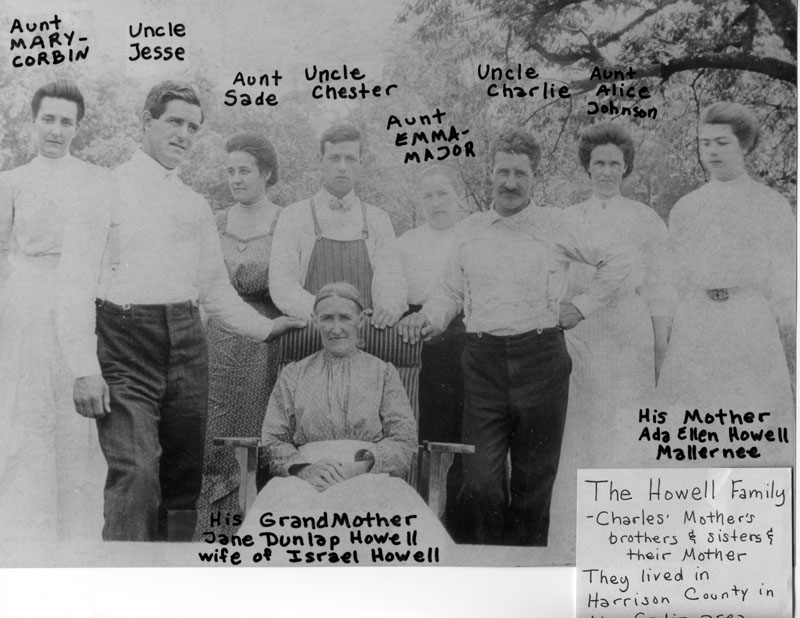 Aunt
MARY-
CORBIN
Uncle
Jesse
Aunt
Sade
Uncle
Chester
Aunt
EMMA-
MAJOR
Uncle
Charlie
Aunt
Alice
Johnson
His Mother
Ada Ellen Howell
Mallernee
His GrandMother
Jane Dunlap Howell
wife of Israel Howell
The Howell Family
-Charles' Mother's
brothers & sisters &
their Mother
They lived in
Harrison County in